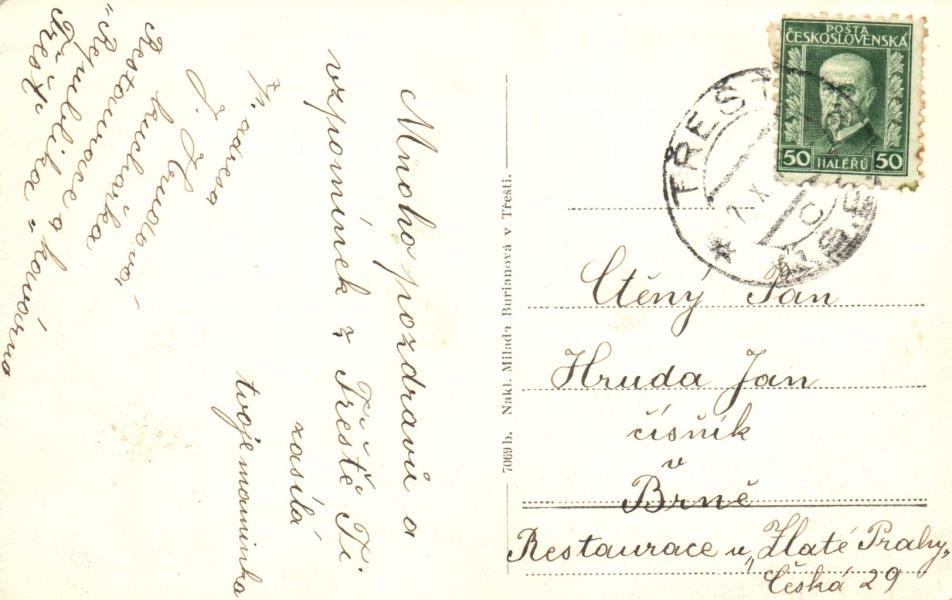 Mnoho pozdravů a
vzpomínek z Třeště Ti
zasílá
tvoje maminka
J. Hrudová
kuchařka
Restaurace a kavárna
„Republika“
Třešť
7069 b. Nakl. Milada Burianová v Třešti.
POŠTA
ČESKOSLOVENSKÁ
50 HALÉŘŮ 50
TŘEŠŤ
Ctěný Pan
Hruda Jan
číšník
v
Brně
Restaurace u „Zlaté Prahy“
Česká 29